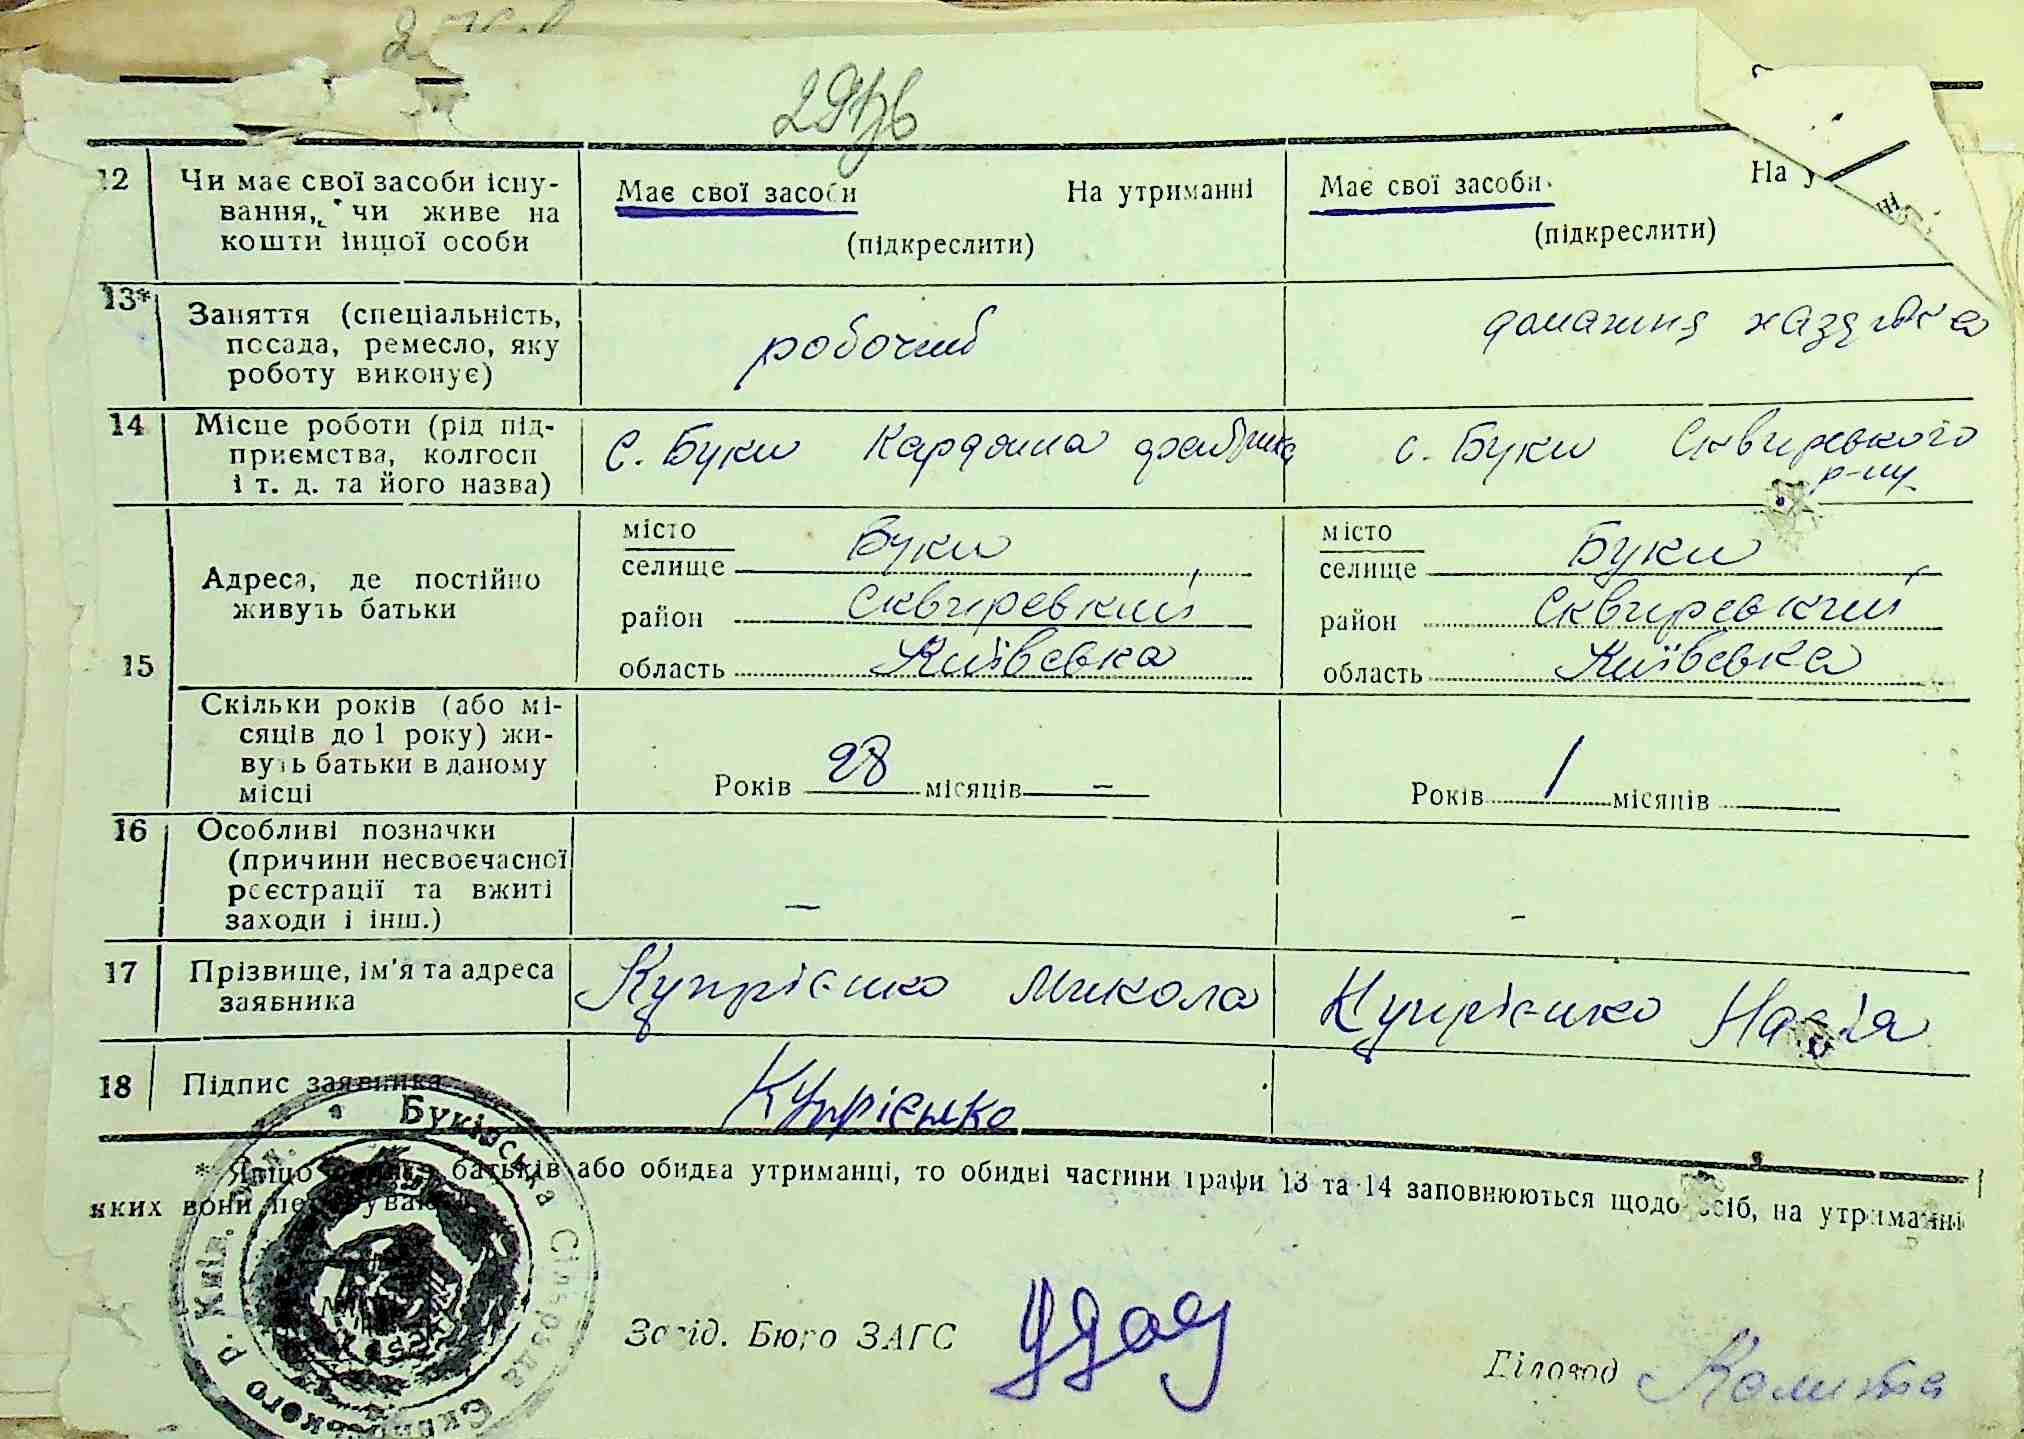 291зв
12 Чи має свої засоби існу-
вання, чи живе на
кошти іншої особи
Має свої засоби На утриманні
(підкреслити)
Має свої засоби На у
(підкреслити)
13* Заняття (спеціальність,
посада, ремесло, яку
роботу виконує)
робочий
домашня хазяйка
14 Місце роботи (рід під-
приємства, колгосп
і т. д. та його назва)
С. Буки Кардонна фабрика
с. Буки Сквирського
р-ну
15 Адреса, де постійно
живуть батьки
місто
селище Буки
район Сквирський
область Київська
місто
селище Буки
район Сквирський
область Київська
Скільки років (або мі-
сяців до 1 року) жи-
вуть батьки в даному
місці
Років 28 місяців –
Років 1 місяців
16 Особливі позначки
(причини несвоєчасної
реєстрації та вжиті
заходи і інш.)
–
-
17 Прізвище, ім'я та адреса
заявника
Купрієнко Микола
Купрієнко Надія
18 Підпис заявника
Купрієнко
* Якщо батьків або обидва утриманці, то обидві частини графи 13 та 14 заповнюються щодо осіб, на утриманні
яких вони перебувають
Буківська Сільрада Сквирського р. Київ.
Завід. Бюро ЗАГС
Діловод